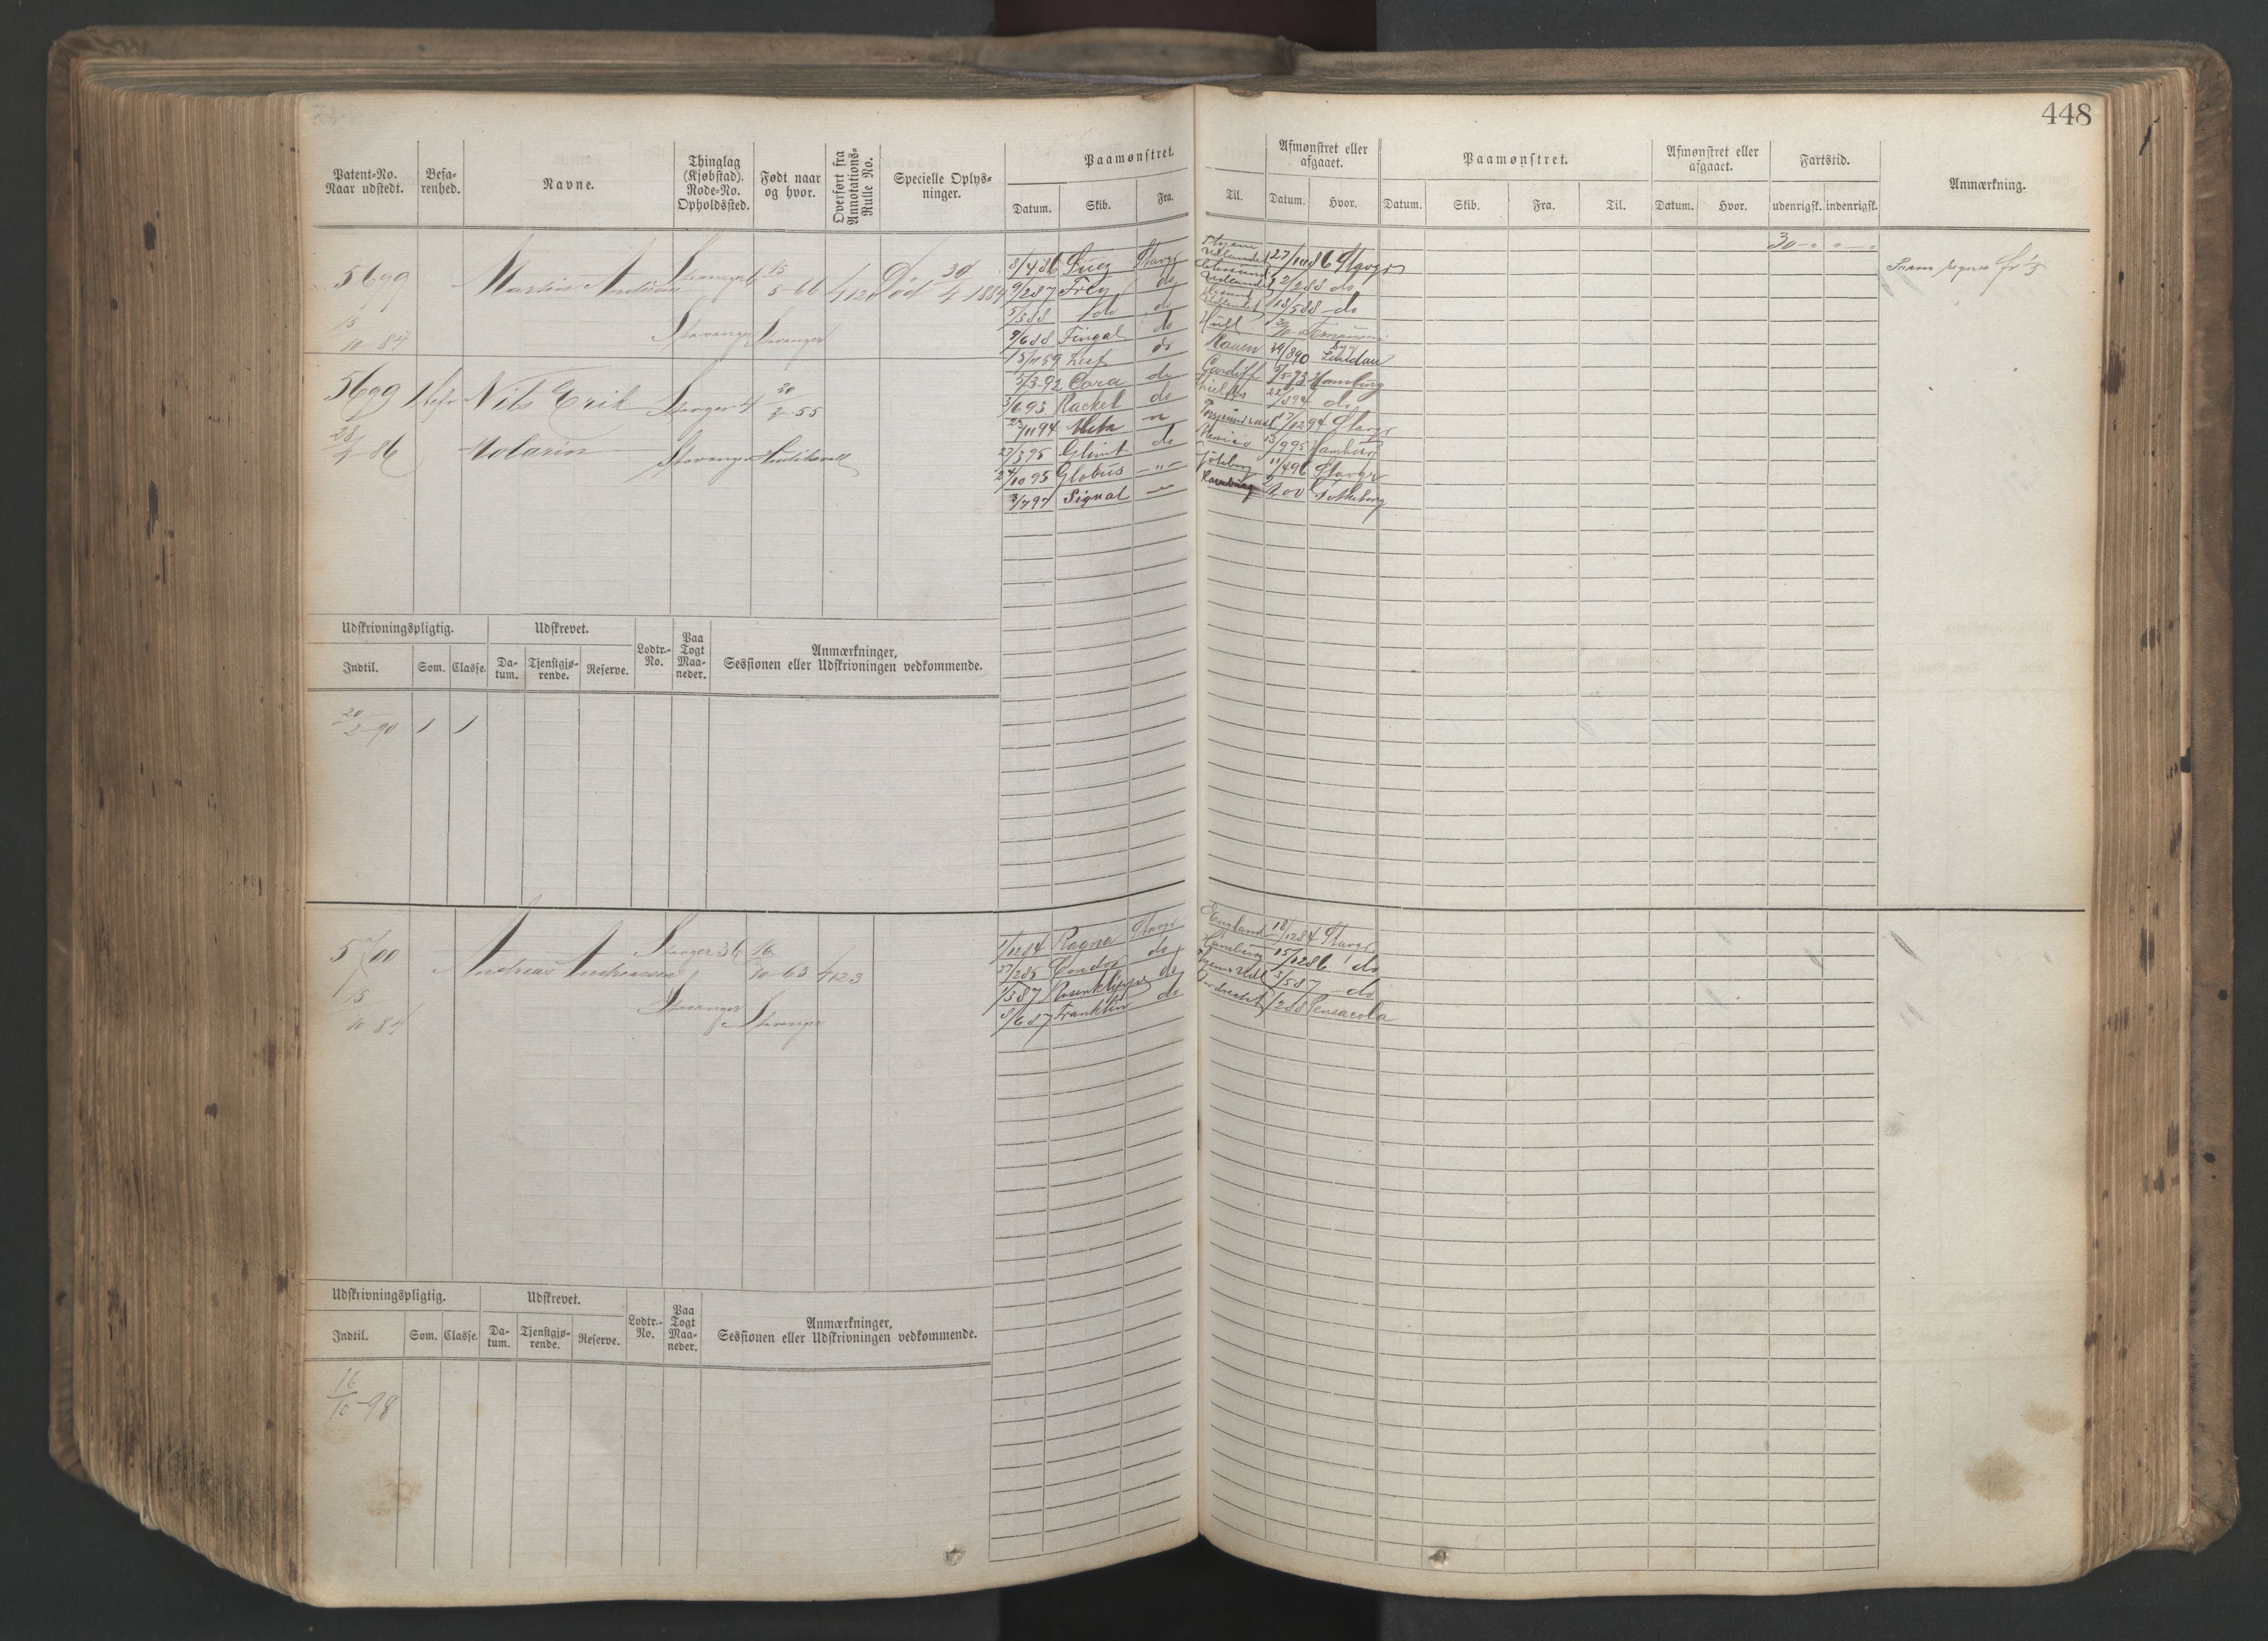 448
Patent-No. Naar udstedt.
Befarenhed.
Navne.
Thinglag (Kjøbstad). Rode-No. Opholdssted.
Født naar og hvor.
Overført fra Annotations-Rulle No.
Specielle Oplysninger.
Paamønstret.
Datum. Skib. Fra. Til.
Afmønstret eller afgaaet.
Datum. Hvor.
Paamønstret.
Datum. Skib. Fra. Til.
Afmønstret eller afgaaet.
Datum. Hvor.
Fartstid.
udenrigsk. indenrigsk.
Anmærkning.
5699 Martin 15/5-66 Død 30/4 1884
15/10-84 Stavanger Stavanger
5699 Nils Erik 4 20/2-55
28/4-86 Molarin Stavanger
8/4 86 Suez Stavgr 27/10 86 Stavgr 30
9/2 87 Frey do Udlandet 2/2 88 do
5/3 88 do do Udlandet 18/5 88 do
9/6 88 Fingal do Hull
15/11 89 Leif do Rouen 19/8 90
5/3-92 Cora do Cardiff 5/5-93 Hamburg
3/6 93 Rackel do 22/8 94 do
23/11 94 Meta 17/12 94 Stavgr
27/3 95 Glimt do Mexico 13/9 95 Hamburg
24/10 95 Globus -"- 11/4 96 Stavgr
3/7 97 Signal Hamburg Gotheborg
Udskrivningspligtig.
Indtil. Som. Classe.
Udskrevet.
Datum. Tjenstgjørende. Reserve.
Lodtr.-No.
Paa Togt Maaneder.
Anmærkninger, Sessionen eller Udskrivningen vedkommende.
20/2-90 1 1
5700 Andreas Andreassen 36 16/10-63 4123
15/10-84 Stavanger Stavanger
1/12 84 Ragna Stavgr England 18/12 84 Stavgr
27/2 85 Condor do Hamburg 15/12 86 do
1/3 87 Rosenkilde do 3/5 87 do
8/6 87 Franklin do Dordrecht 1/2 88 Pensacola
Udskrivningspligtig.
Indtil. Som. Classe.
Udskrevet.
Datum. Tjenstgjørende. Reserve.
Lodtr.-No.
Paa Togt Maaneder.
Anmærkninger, Sessionen eller Udskrivningen vedkommende.
16/10-98